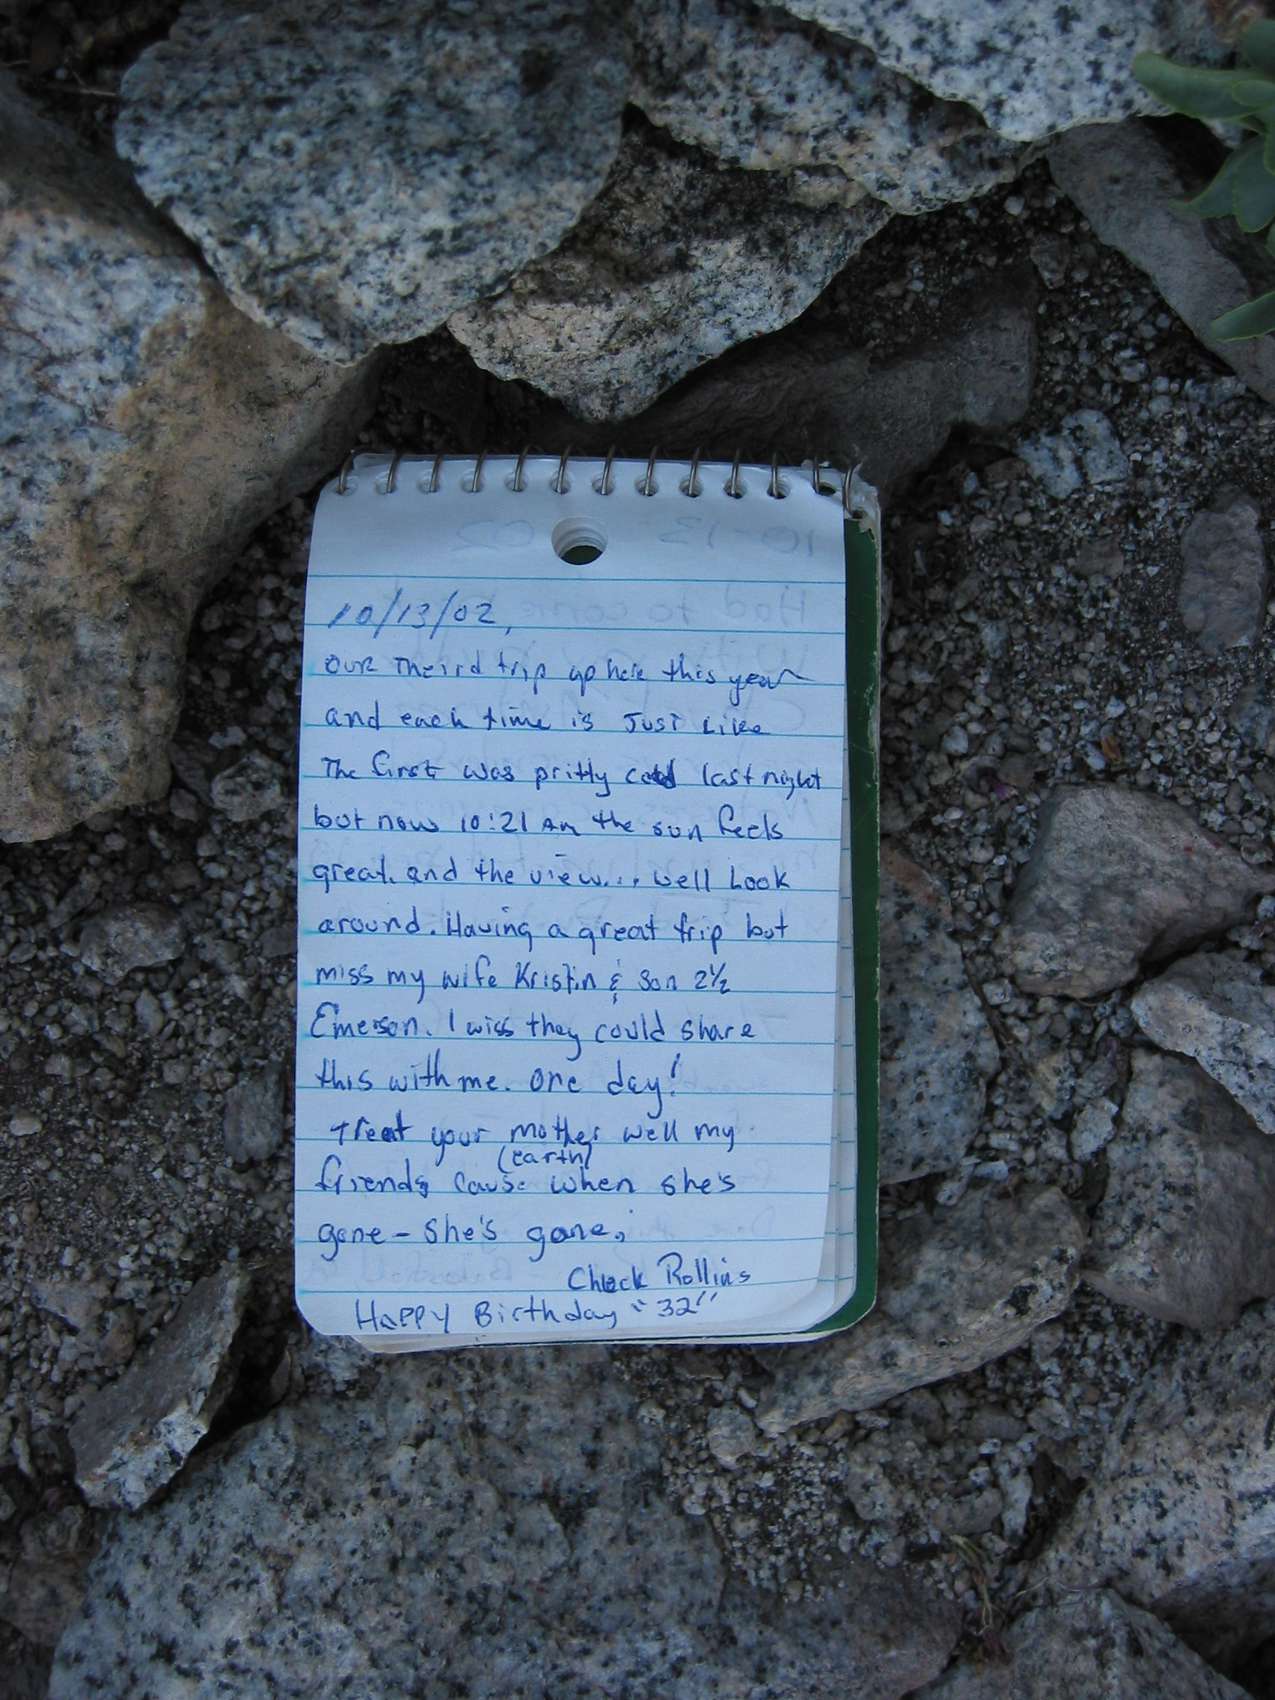 10/13/02,
Our Theird trip up here this year
and each time is Just Like
The first was pritty cold last night
but now 10:21 AM the sun feels
great. and the view... well Look
around. Having a great trip but
miss my wife Kristin & Son 2½
Emerson. I wiss they could share
this with me. One day!
treat your mother well my
(earth)
friends cause when she's
gone - she's gone.
Chuck Rollins
Happy Birthday "32"